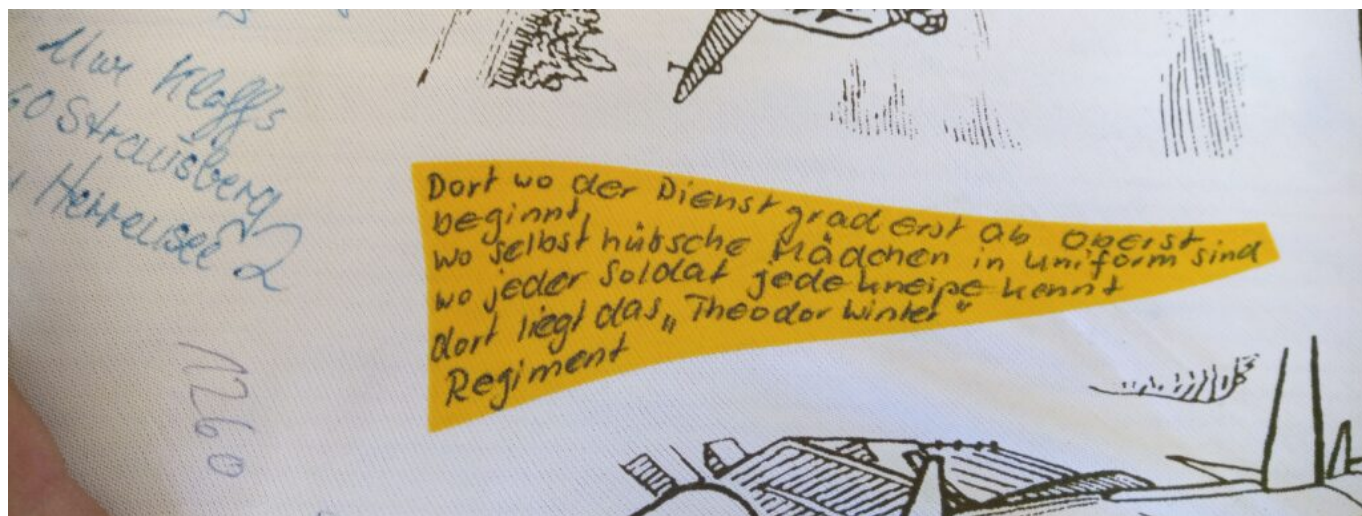 Uwe Klaffs
60 Strausberg
Herrensee 2
1260
Dort wo der Dienstgrad erst ab Oberst
beginnt,
wo selbst hübsche Mädchen in Uniform sind
wo jeder Soldat jede kneipe kennt
dort liegt das „Theodor Winter"
Regiment